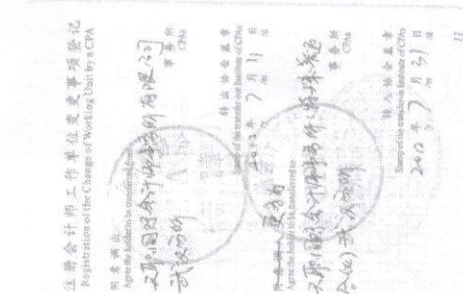 注册会计师工作单位变更事项登记
Registration of the Change of Working Unit by a CPA
同意调出
Agree the holder to be transferred from
天职国际会计师事务所有限公司
武汉分所
事务所
CPAs
转出协会盖章
Stamp of the transfer-out Institute of CPAs
2012年7月31日
同意调入
Agree the holder to be transferred to
天职国际会计师事务所(特殊普通
合伙)武汉分所
事务所
CPAs
转入协会盖章
Stamp of the transfer-in Institute of CPAs
2012年7月31日
11